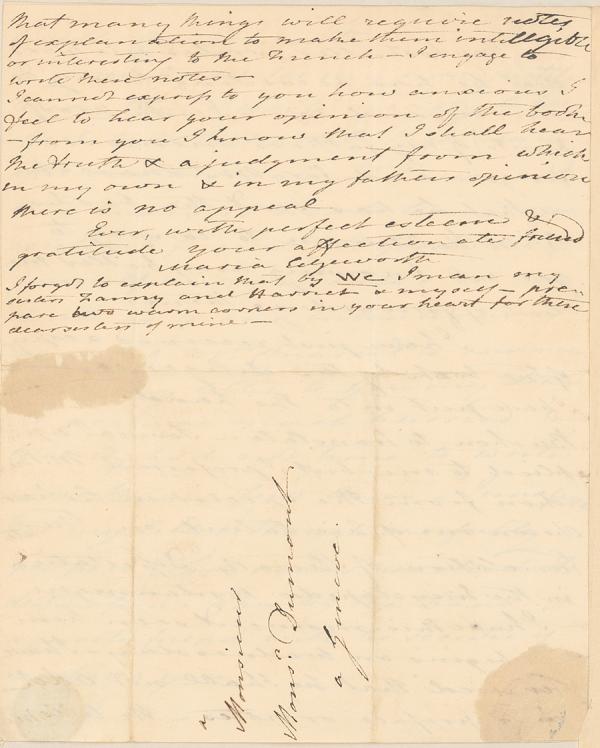 that many things will require notes
of explanation to make them intelligible
or interesting to the French — I engage to
write these notes —
I cannot express to you how anxious I
feel to hear your opinion of the book
— from you I know that I shall hear
the truth & a judgment from which
in my own & in my fathers opinion
there is no appeal
Ever, with perfect esteem &
gratitude your affectionate friend
Maria Edgeworth
I forgot to explain that by We I mean my
sisters Fanny and Harriet & myself — pre-
pare two warm corners in your heart for these
dear sisters of mine —
a Monsieur
Monsr. Dumont
a Geneve.